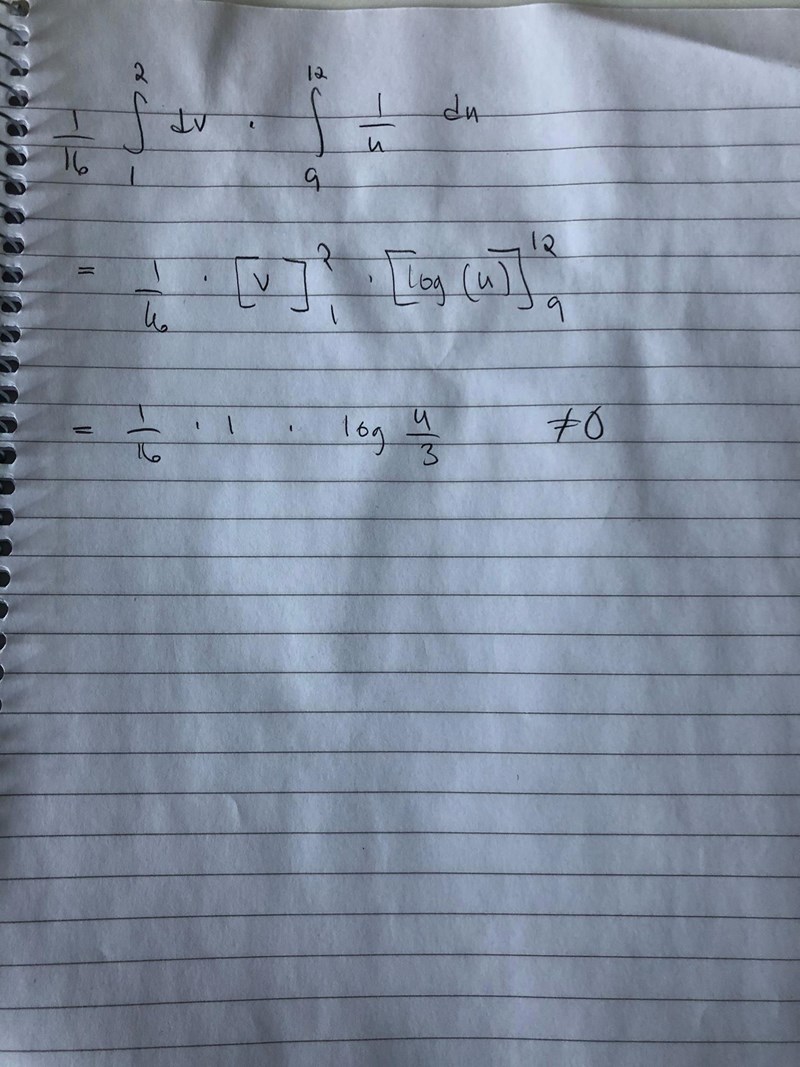 1/16 ∫₁² dv · ∫₉¹² 1/u du
= 1/16 · [v]₁² · [log (u)]₉¹²
= 1/16 · 1 · log 4/3 ≠0